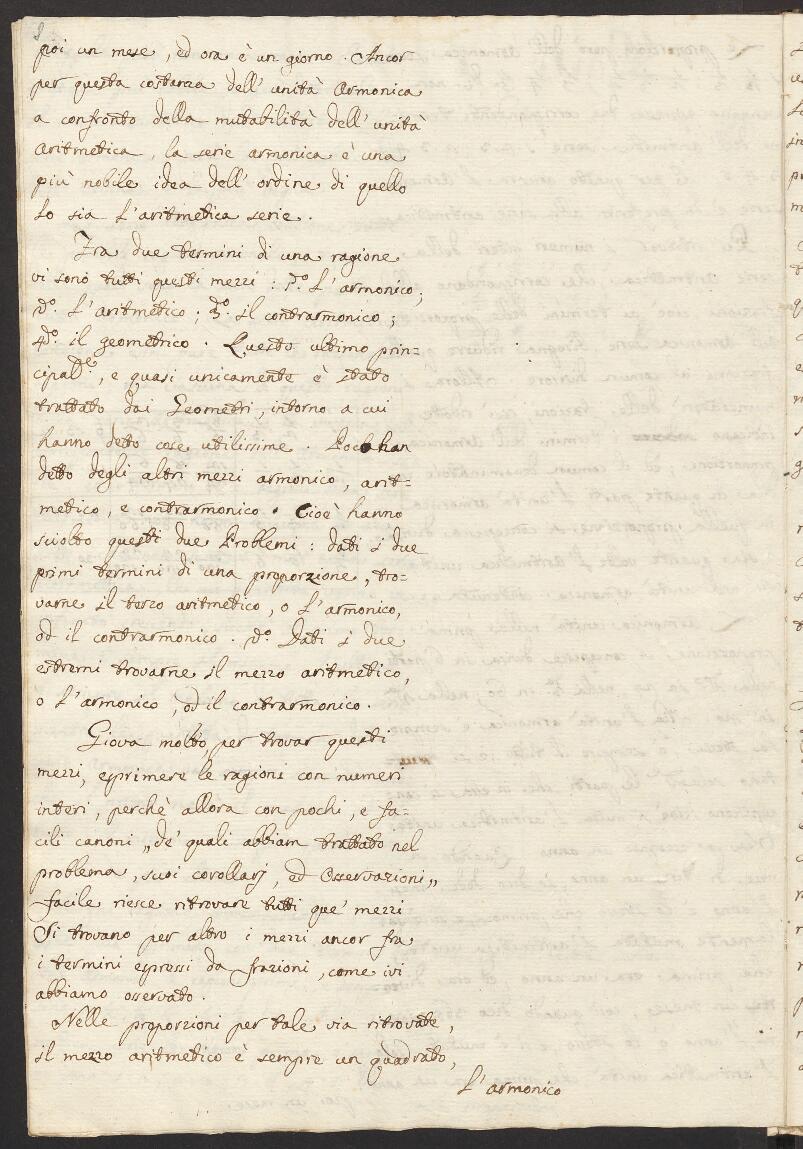 poi un mese, ed ora è un giorno. Ancor
per questa costanza dell'unità armonica
a confronto della mutabilità dell'unità
aritmetica, la serie armonica è una
più nobile idea dell'ordine di quello
lo sia l'aritmetica serie.
Tra due termini di una ragione
vi sono tutti questi mezzi: 1.º l'armonico;
2º. l'aritmetico; 3º. il contrarmonico;
4º. il geometrico. Questo ultimo prin=
cipal.te, e quasi unicamente è stato
trattato dai Geometri, intorno a cui
hanno detto cose utilissime. Poco han
detto degli altri mezzi armonico, arit=
metico, e contrarmonico. Cioè hanno
sciolto questi due Problemi: dati i due
primi termini di una proporzione, tro=
varne il terzo aritmetico, o l'armonico,
od il contrarmonico. 2º. Dati i due
estremi trovarne il mezzo aritmetico,
o l'armonico, od il contrarmonico.
Giova molto, per trovar questi
mezzi, esprimere le ragioni con numeri
interi, perchè allora con pochi, e fa=
cili canoni „de' quali abbiam trattato nel
problema, suoi corollarj, ed Osservazioni„
facile riesce ritrovare tutti que' mezzi
Si trovano per altro i mezzi ancor fra
i termini espressi da frazioni, come ivi
abbiamo osservato.
Nelle proporzioni per tale via ritrovate,
il mezzo aritmetico è sempre un quadrato,
l'armonico